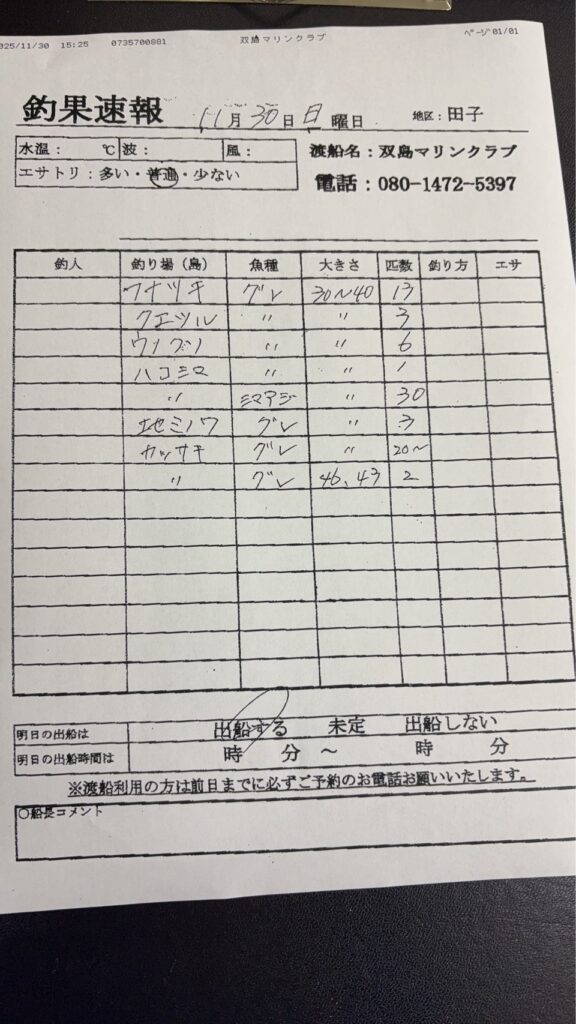 025/11/30 15:25 0735700881 双島マリンクラブ ページ 01/01
釣果速報 11月30日日曜日 地区：田子
水温： ℃ 波： 風： 渡船名：双島マリンクラブ
エサトリ：多い・普通・少ない 電話：080-1472-5397
釣人 釣り場（島） 魚種 大きさ 匹数 釣り方 エサ
フナツキ グレ 30〜40 13
クエツル 〃 〃 3
ウノクソ 〃 〃 6
ハコシマ 〃 〃 1
〃 シマアジ 〃 30
地ミノワ グレ 〃 3
カッサキ グレ 〃 20〜
〃 グレ 46、43 2
明日の出船は 出船する 未定 出船しない
明日の出船時間は 時 分 〜 時 分
※渡船利用の方は前日までに必ずご予約のお電話お願いいたします。
○船長コメント